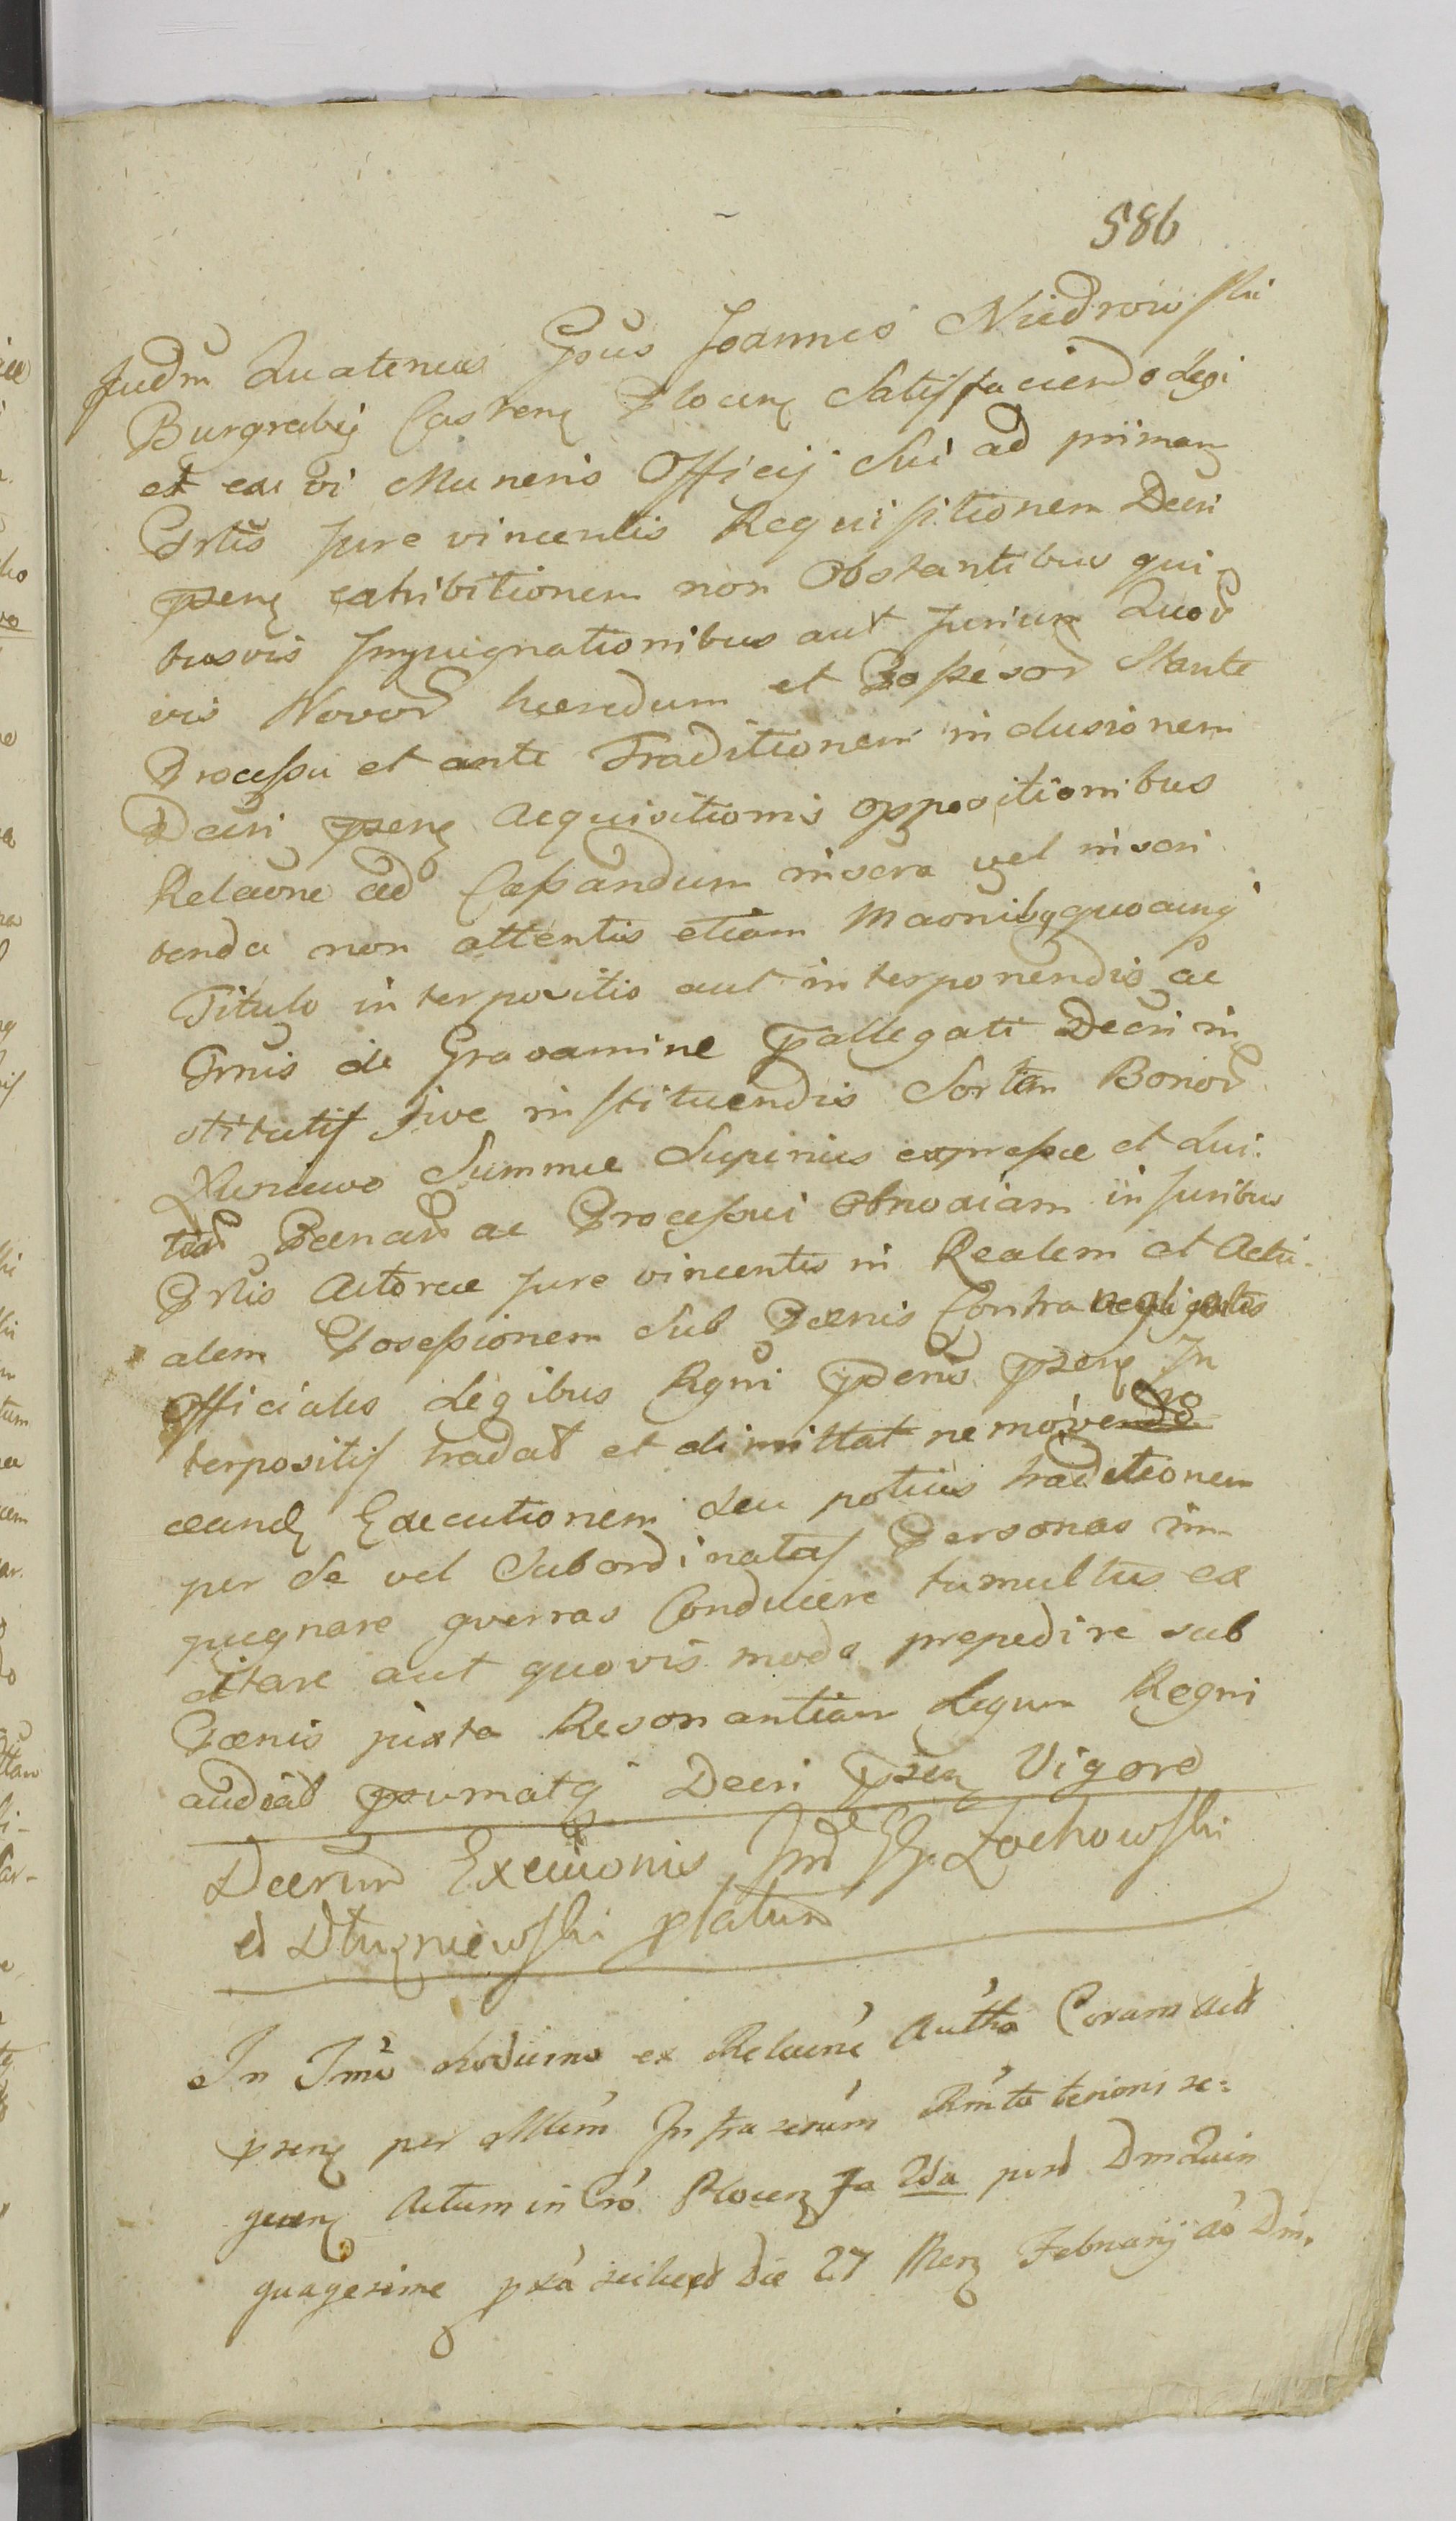 586
Judm Quatenus Gsus Joannes Niedrowski
Burgrabij Castren Plocen Satisfaciendo Legi
et ex vi Muneris Officij Sui ad primam
Prtis Jure vincentis Requisitionem Decri
psen exhibitionem non Obstantibus qui-
busvis Impugnationibus aut Jurium Quor
vis Novor hæredum et Possesor Stante
Processu et ante Traditionem inclusionem
Decri psen Acquisitionis oppositionibus
Relaone ad Cassandum inserta vel inseri
benda non attentis etiam Maonibq quocunq
Titulo interpositis aut interponendis ac
de Gravamine pallegati Decri in
stitutis sive instituendis Sortem Bonor
Summæ Superius expressæ et Lui-
tior Pænar ac Processui Obnoxiam in Juribus
Prtis Actoreæ Jure vincentis in Realem et Actu-
alem Posessionem Sub Pænis Contra negligentes
Officiales Legibus Rgni psen In
terpositis tradat et dimittat ne movendo
eand Executionem Seu potius traditionem
per Se vel Subordinatas Personas im
pugnare guerras Conducere tumultus ex
citare aut quovis modo prepedire sub
Pænis juxta Resonantiam Legum Regni
audeat psumatq Decri psen Vigore
Decrum Execuionis Int GG. Zochowski
et Dłuzniewski platum
In Jmo hodierno ex Relacne Auttha Coram Act
psen per Mm Infrascrum tenoris se=
quen Actum in Cro Plocen Fa 2da post Dm Quin
quagesimæ pxa scilicet Die 27 Men Februarij Ao Dni,